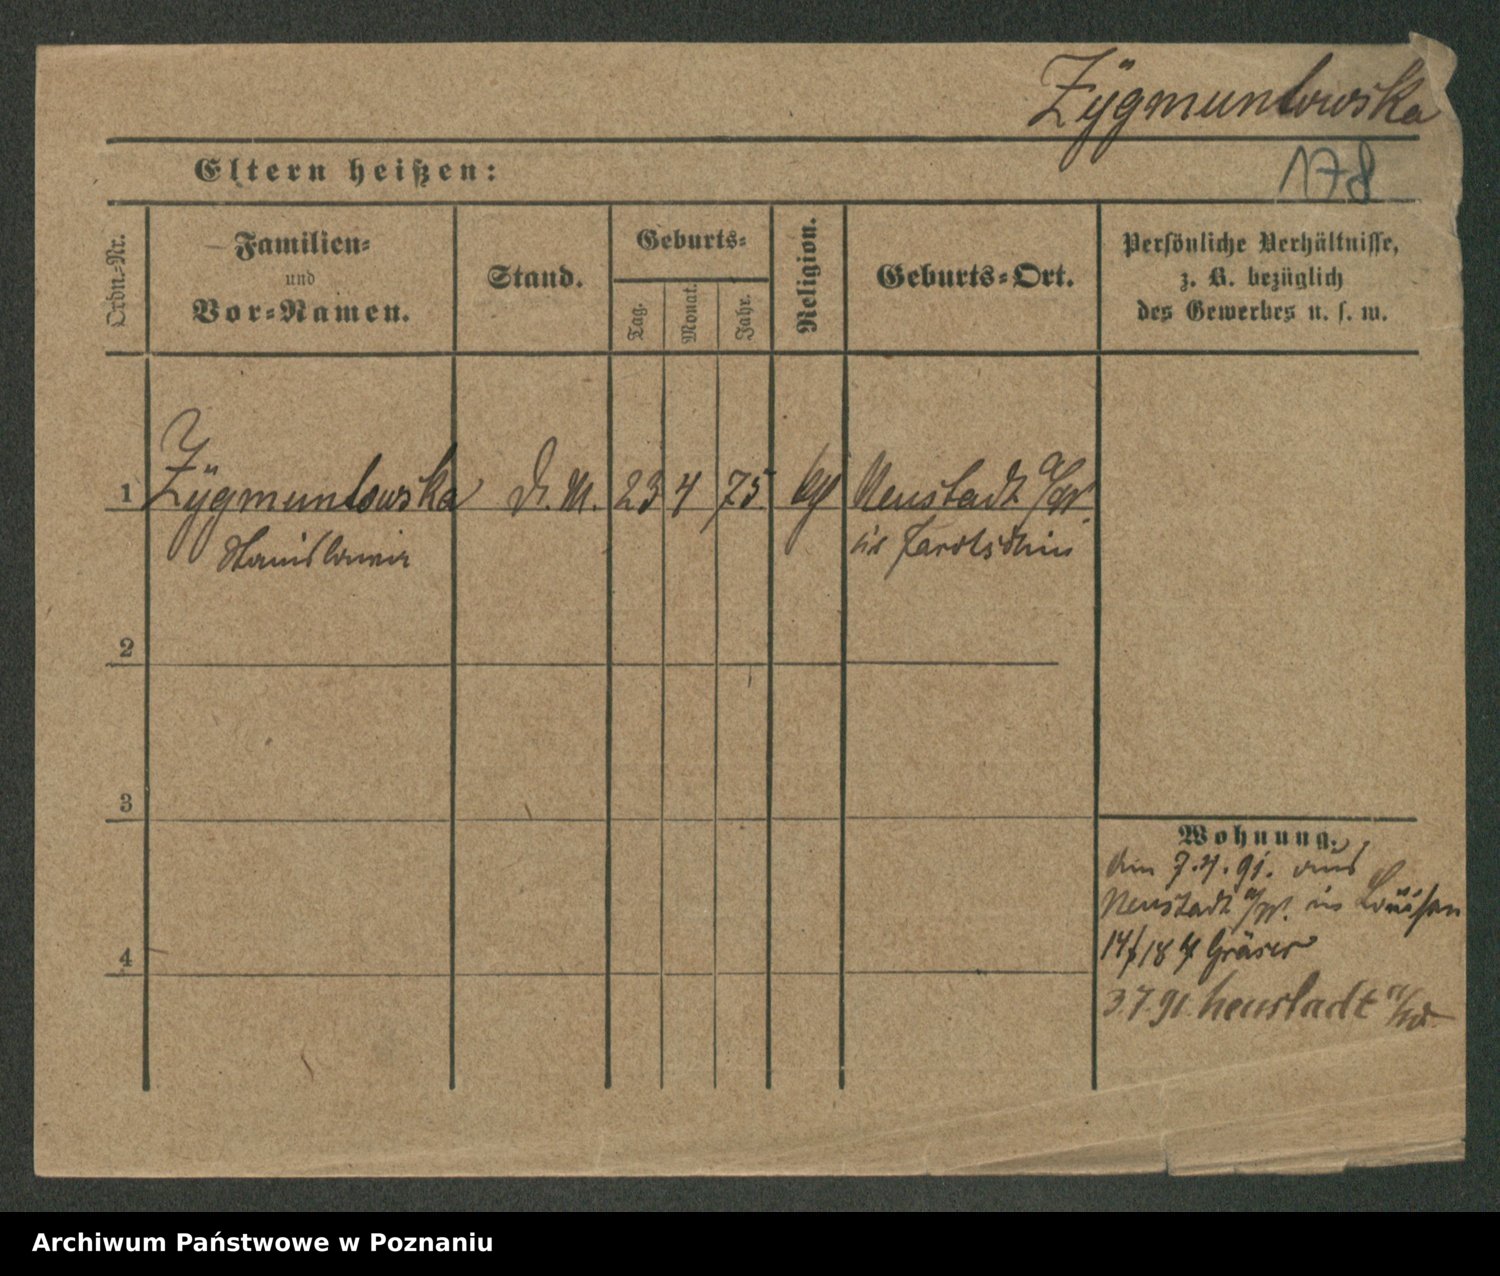 Zÿgmuntowska
Eltern heißen:
178
Ordn.-Nr.
Familien-
und
Vor-Namen.
Stand.
Geburts-
Tag.
Monat.
Jahr.
Religion.
Geburts-Ort.
Persönliche Verhältnisse,
z. B. bezüglich
des Gewerbes u. s. w.
1 Zÿgmuntowska D. M. 23 4 75 Neustadt a/W.
Stanislawa Jarotschin
2
3
4
Wohnung.
7.4.91. aus
Neustadt a/W.
14/18 Gräser
3.7.91 Neustadt a/W.
Archiwum Państwowe w Poznaniu